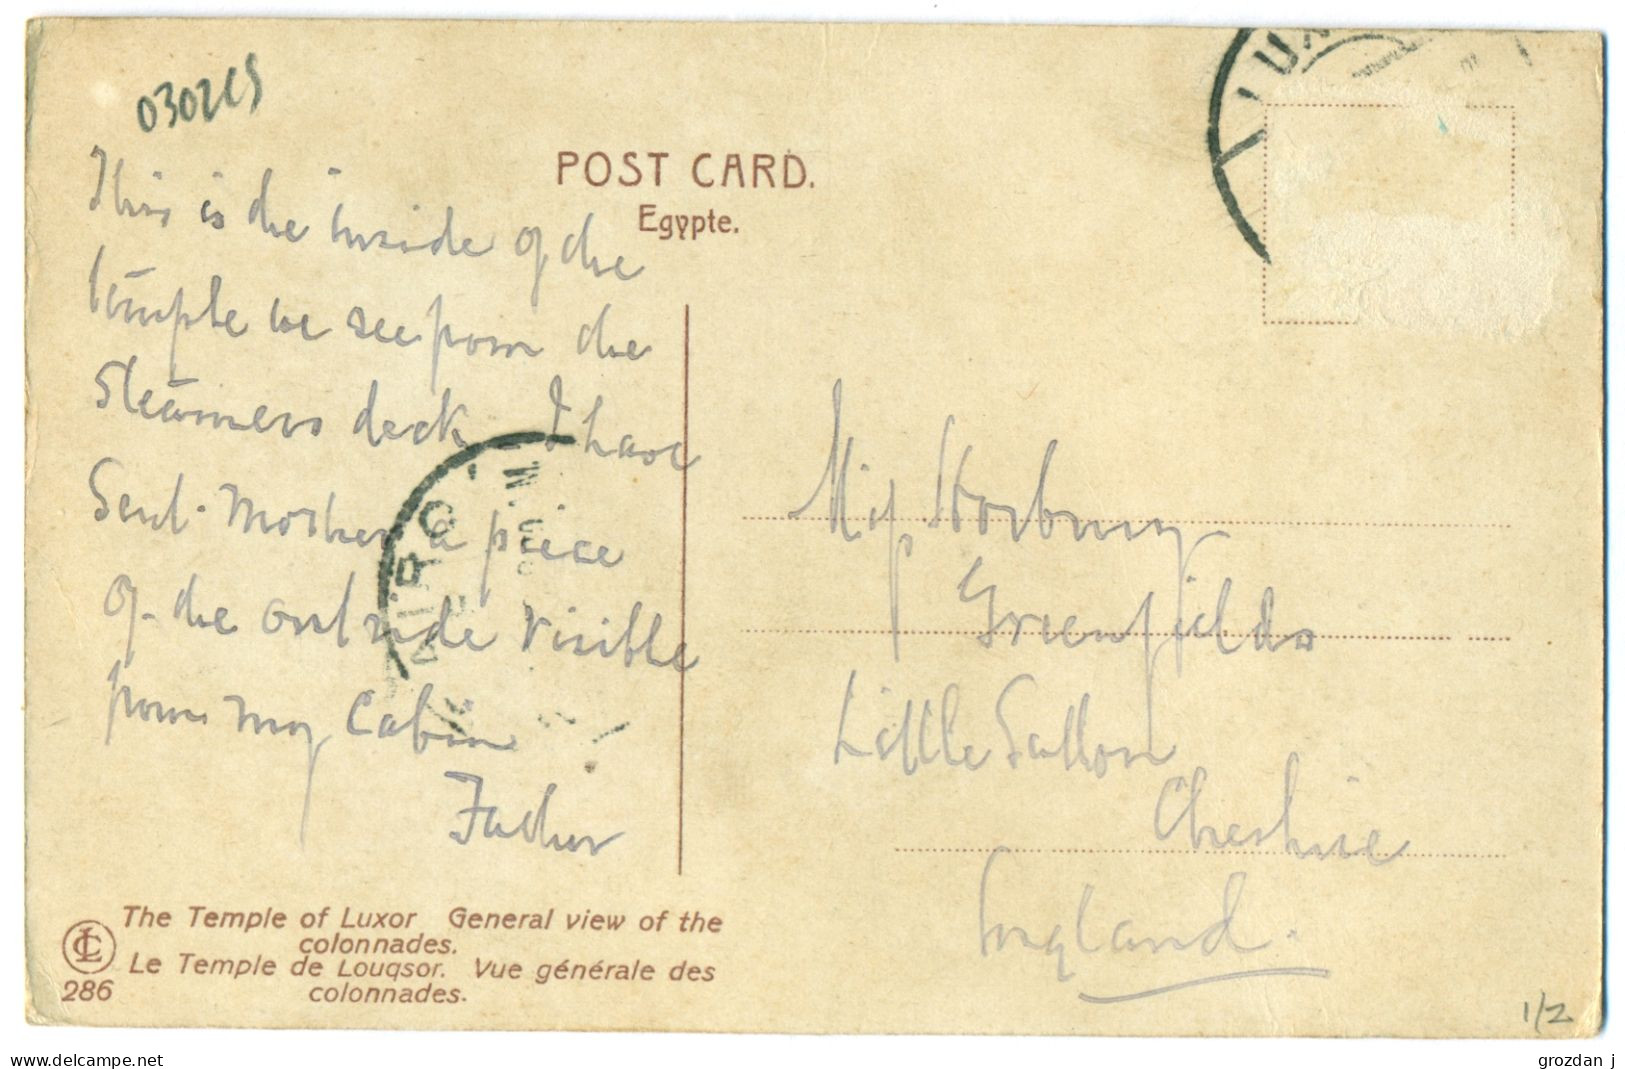 030265
POST CARD.
Egypte.
LUX
This is the inside of the
temple we see from the
Steamers deck I have
Sent Mother a piece
of the outside visible
from my Cabin
Father
CAIRO
Miss Horbury
Greenfields
Little Sutton
Cheshire
England.
The Temple of Luxor General view of the
colonnades.
Le Temple de Louqsor. Vue générale des
colonnades.
LC
286
1/2
www.delcampe.net
grozdan j